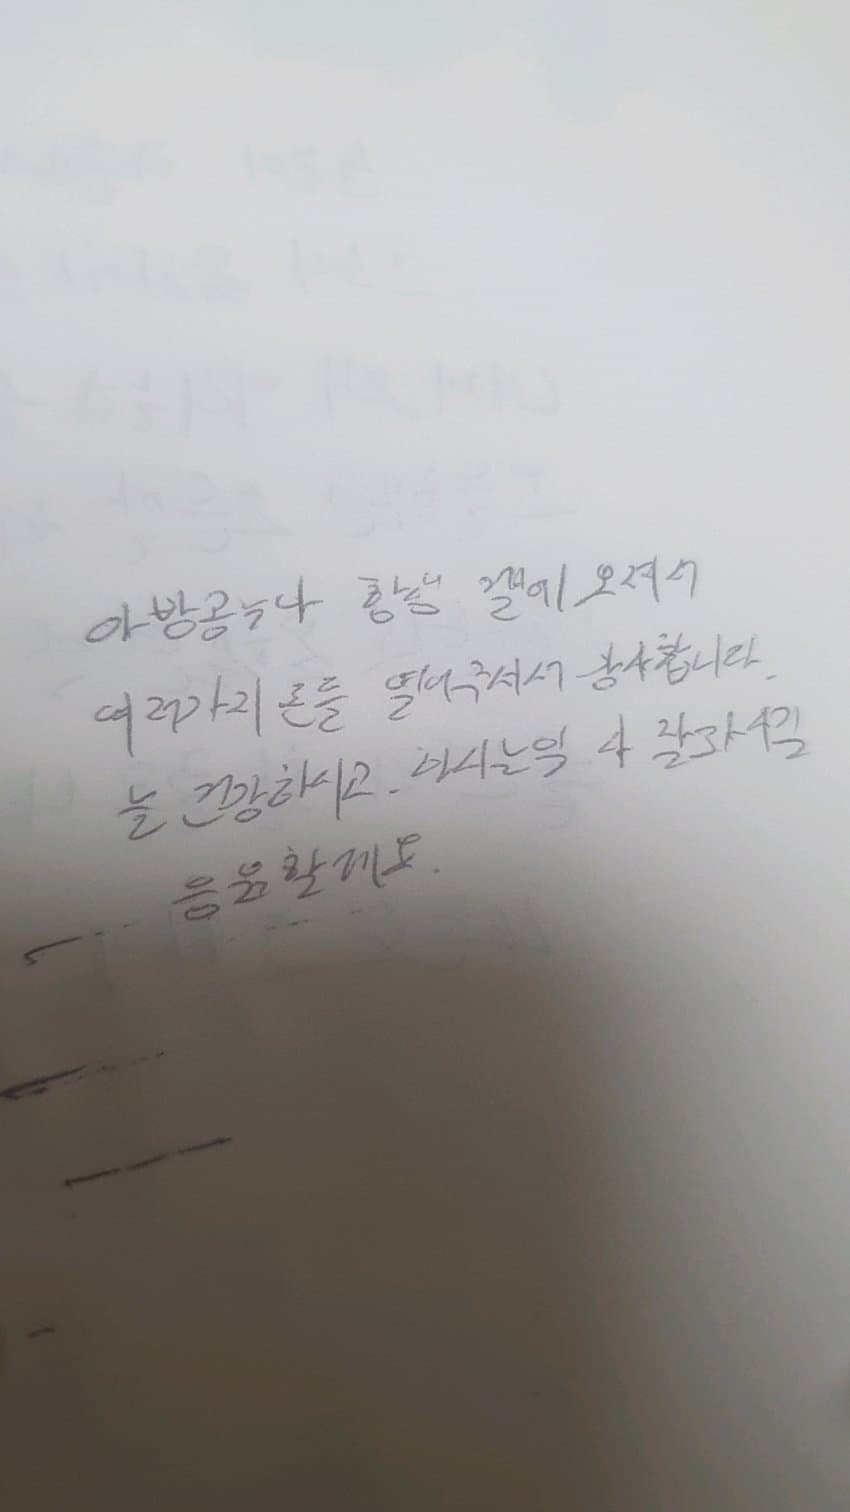 아방공누나 황님 곁에 오셔서
여러가지 론들 열어주셔서 감사합니다.
늘 건강하시고. 하시는일 다 잘되시길
응원할게요.